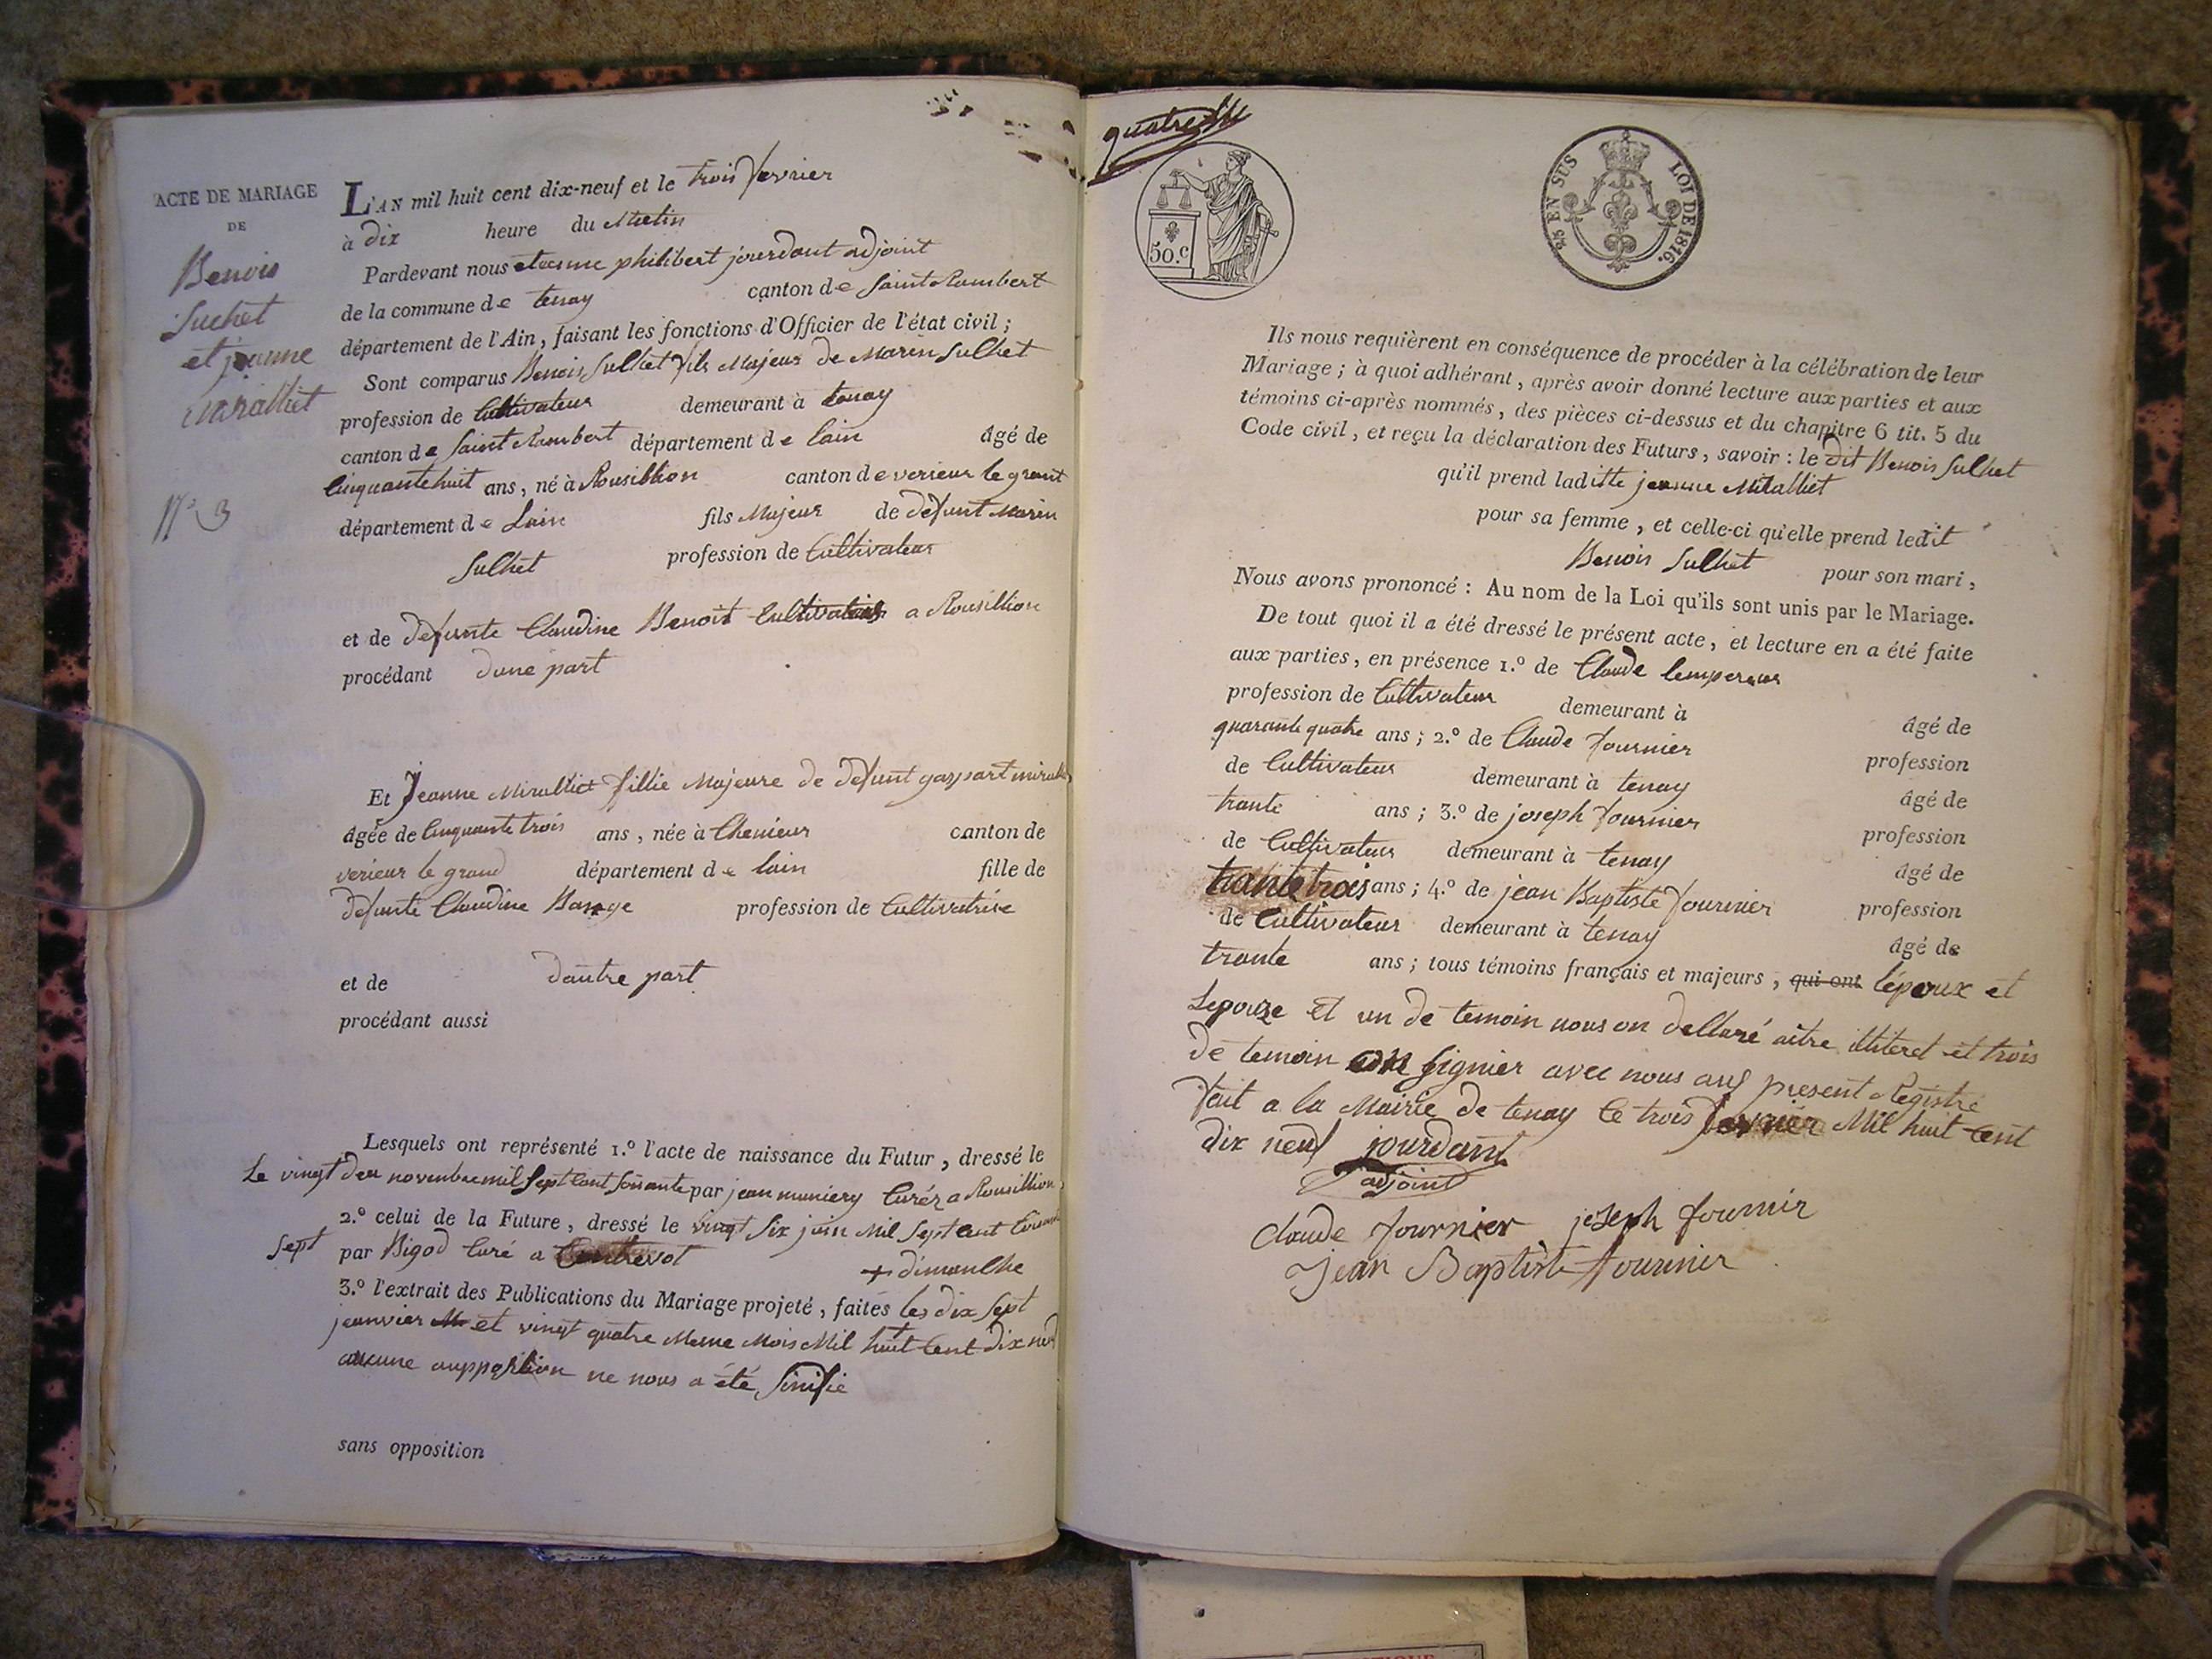 ACTE DE MARIAGE
DE
Benois
Suchet
et jeanne
Miralliet
N.° 3
L'AN mil huit cent dix-neuf et le trois fevrier
à dix heure du Matin
Pardevant nous etienne philibert jourdant adjoint
de la commune de tenay canton de Saint Rambert
département de l'Ain, faisant les fonctions d'Officier de l'état civil ;
Sont comparus Benois Sulhet fils Majeur de Marin Sulhet
profession de Cultivateur demeurant à tenay
canton de Saint Rambert département de lain âgé de
Cinquante huit ans, né à Rousillion canton de verieux le grant
département de Lain fils Majeur de defunt Marin
Sulhet profession de Cultivateur
et de defunte Claudine Benoit Cultivateurs a Rousillion
procédant dune part
Et Jeanne Miralliet fillie Majeure de defunt gaspart miralliet
âgée de Cinquante trois ans, née à Chenieux canton de
verieux le grand département de lain fille de
defunte Claudine Barge profession de Cultivatrise
et de dautre part
procédant aussi
Lesquels ont représenté 1.° l'acte de naissance du Futur, dressé le
Le vingt deu novembre mil Sept Cent Soisante par jean muniery Curéz a Rousillion
2.° celui de la Future, dressé le vingt Six juin Mil Sept Cent Soisante
Sept par Bigod Curé a Contrevot
+ dimanche
3.° l'extrait des Publications du Mariage projeté, faites les dix Sept
jeanvier et vingt quatre Meme Mois Mil huit Cent dix neuf
aucune auppossition ne nous a été Sinifie
sans opposition
quatre
50.c
25 EN SUS LOI DE 1816.
Ils nous requièrent en conséquence de procéder à la célébration de leur
Mariage ; à quoi adhérant, après avoir donné lecture aux parties et aux
témoins ci-après nommés, des pièces ci-dessus et du chapitre 6 tit. 5 du
Code civil, et reçu la déclaration des Futurs, savoir : le dit Benois Sulhet
qu'il prend laditte jeanne Miralliet
pour sa femme, et celle-ci qu'elle prend ledit
Benois Sulhet pour son mari,
Nous avons prononcé : Au nom de la Loi qu'ils sont unis par le Mariage.
De tout quoi il a été dressé le présent acte, et lecture en a été faite
aux parties, en présence 1.° de Claude lempereur
profession de Cultivateur demeurant à âgé de
quarante quatre ans ; 2.° de Claude fournier profession
de Cultivateur demeurant à tenay âgé de
trante ans ; 3.° de joseph fournier profession
de Cultivateur demeurant à tenay âgé de
trante trois ans ; 4.° de jean Baptiste fournier profession
de Cultivateur demeurant à tenay âgé de
trante ans ; tous témoins français et majeurs, qui ont lépoux et
Lepouze et un de temoin nous on dellaré aitre illiteret et trois
de temoin on signier avec nous aux present Registre
fait a la Mairie de tenay le trois fevrier Mil huit Cent
dix neuf jourdant
adjoint
Claude fournier joseph fournir
Jean Baptiste fournier